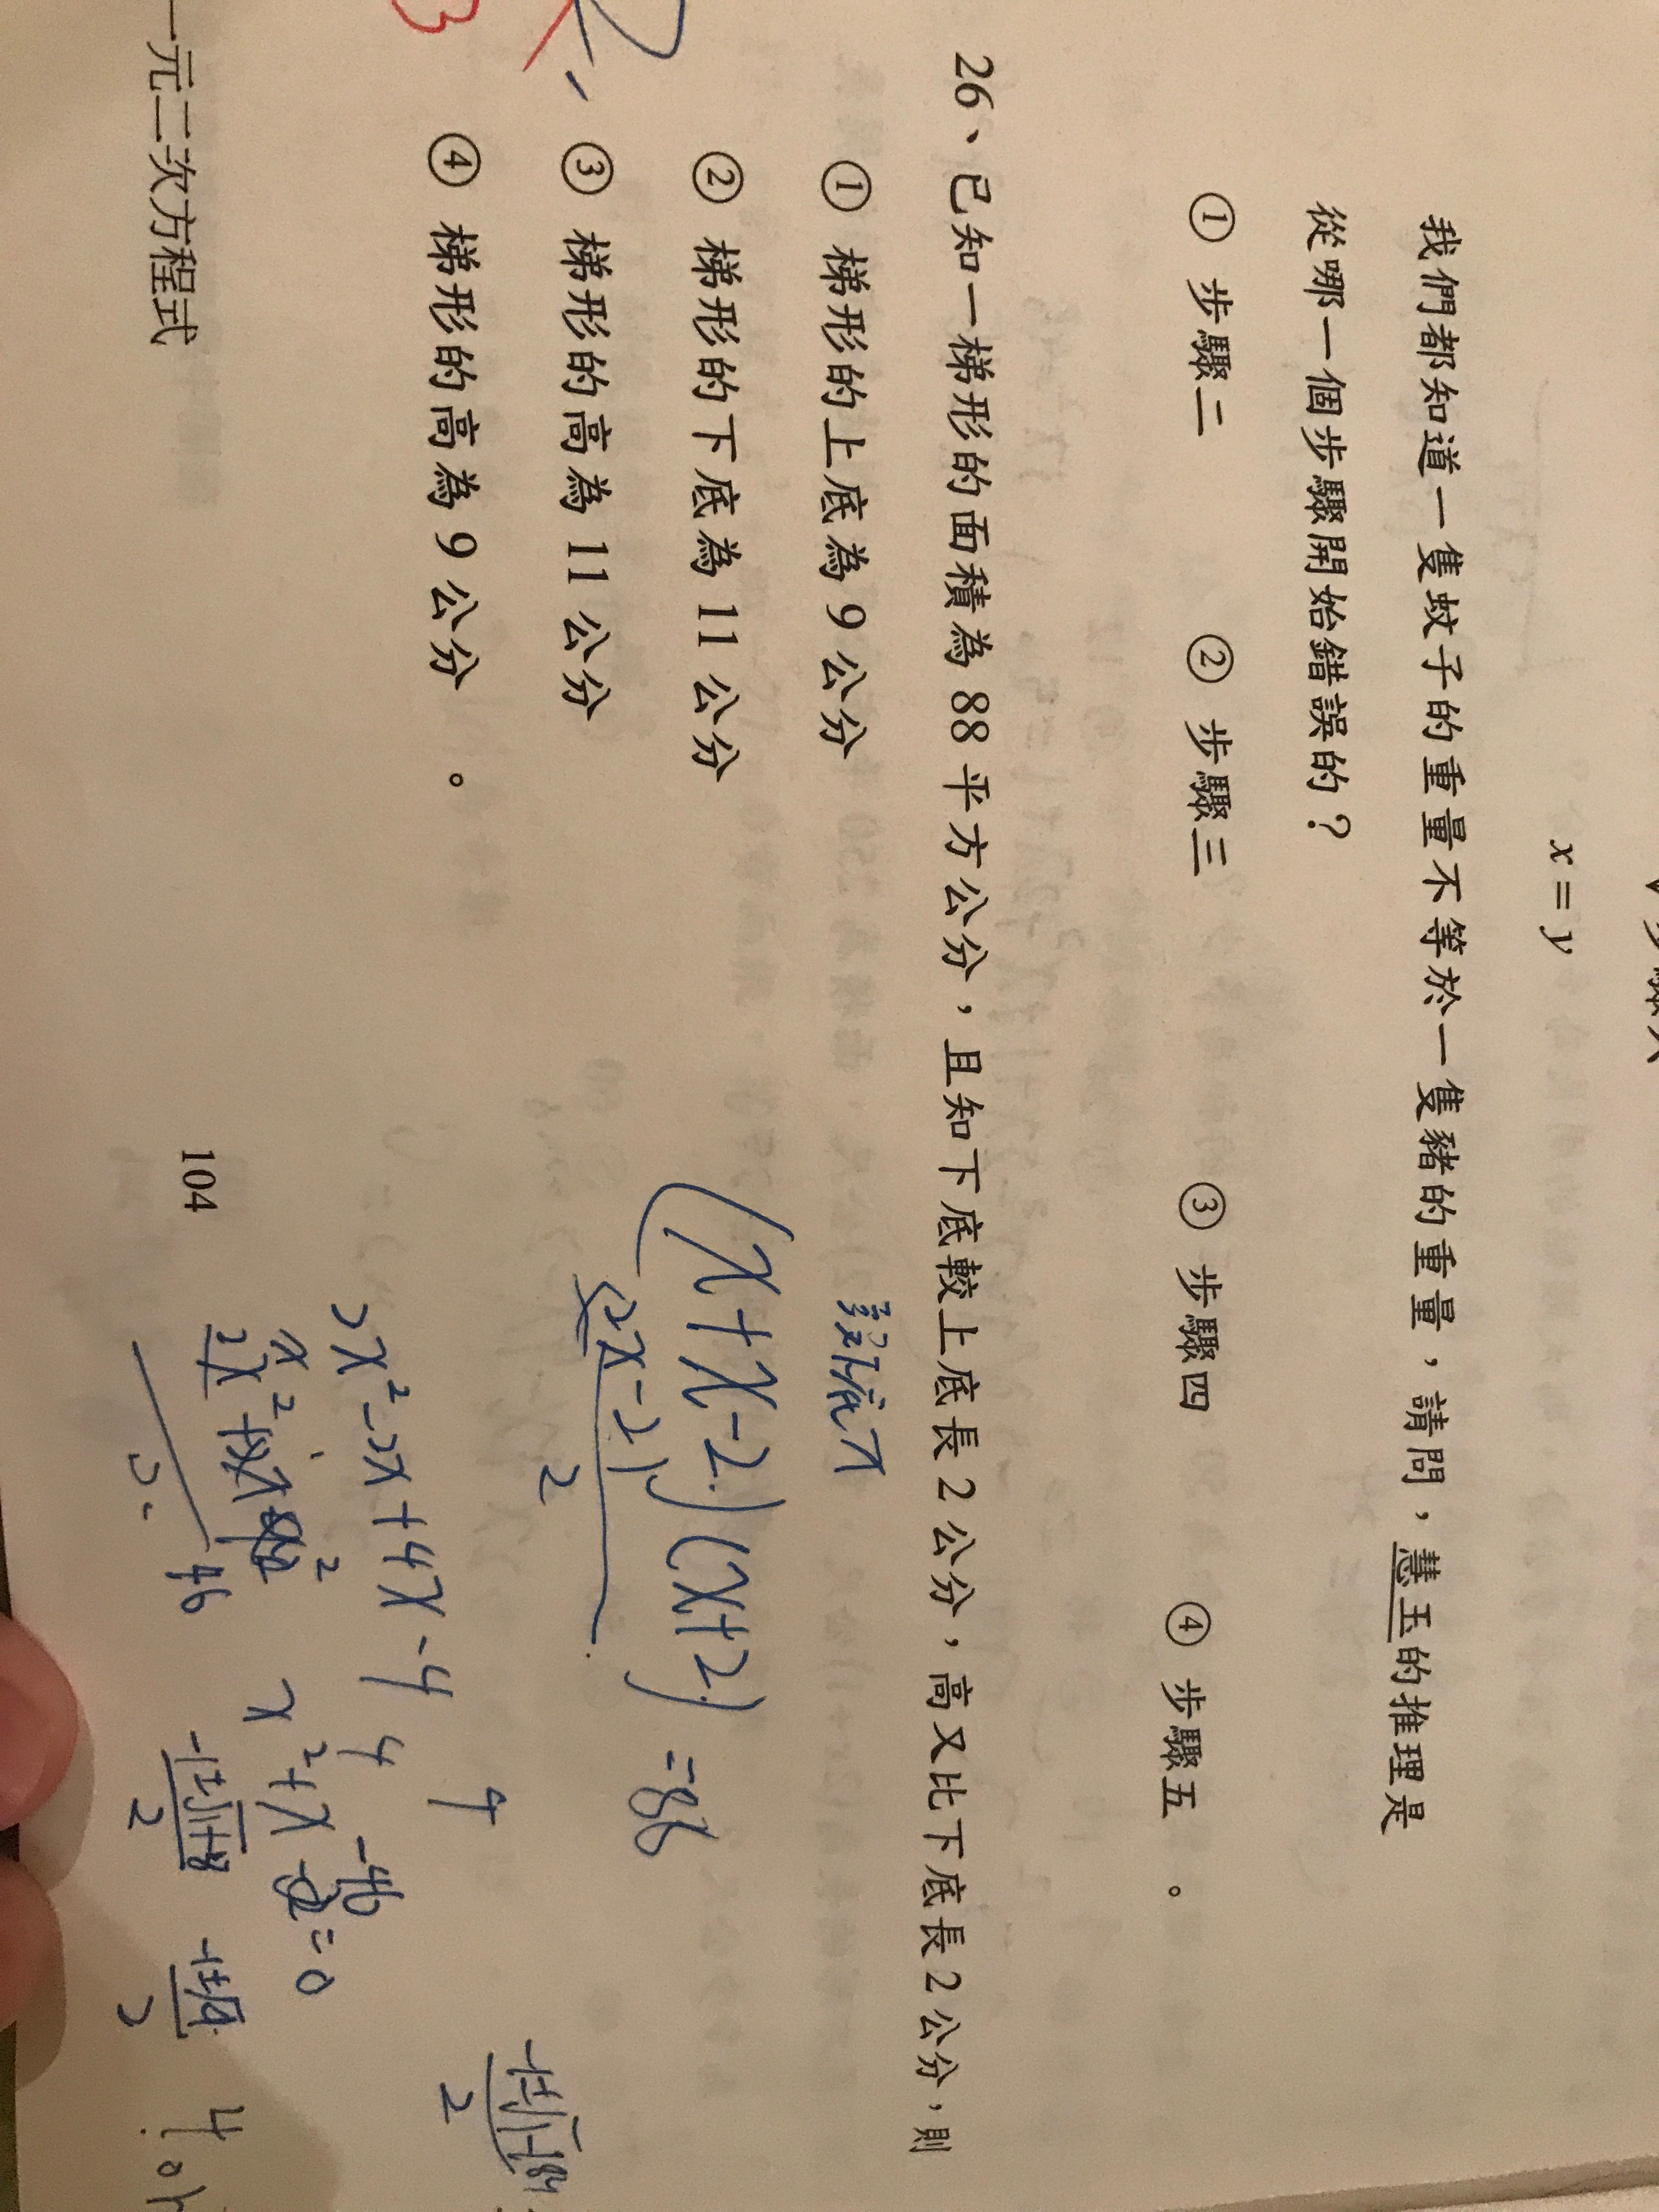 x = y
我們都知道一隻蚊子的重量不等於一隻豬的重量，請問，慧玉的推理是
從哪一個步驟開始錯誤的？
① 步驟二 ② 步驟三 ③ 步驟四 ④ 步驟五 。
26、已知一梯形的面積為 88 平方公分，且知下底較上底長 2 公分，高又比下底長 2 公分，則
① 梯形的上底為 9 公分
② 梯形的下底為 11 公分
③ 梯形的高為 11 公分
④ 梯形的高為 9 公分 。
設下底x
(x+x-2)(x+2) =88
(2x-2)
2
2x²-2x+4x-4
x²+x
=0
104
一元二次方程式